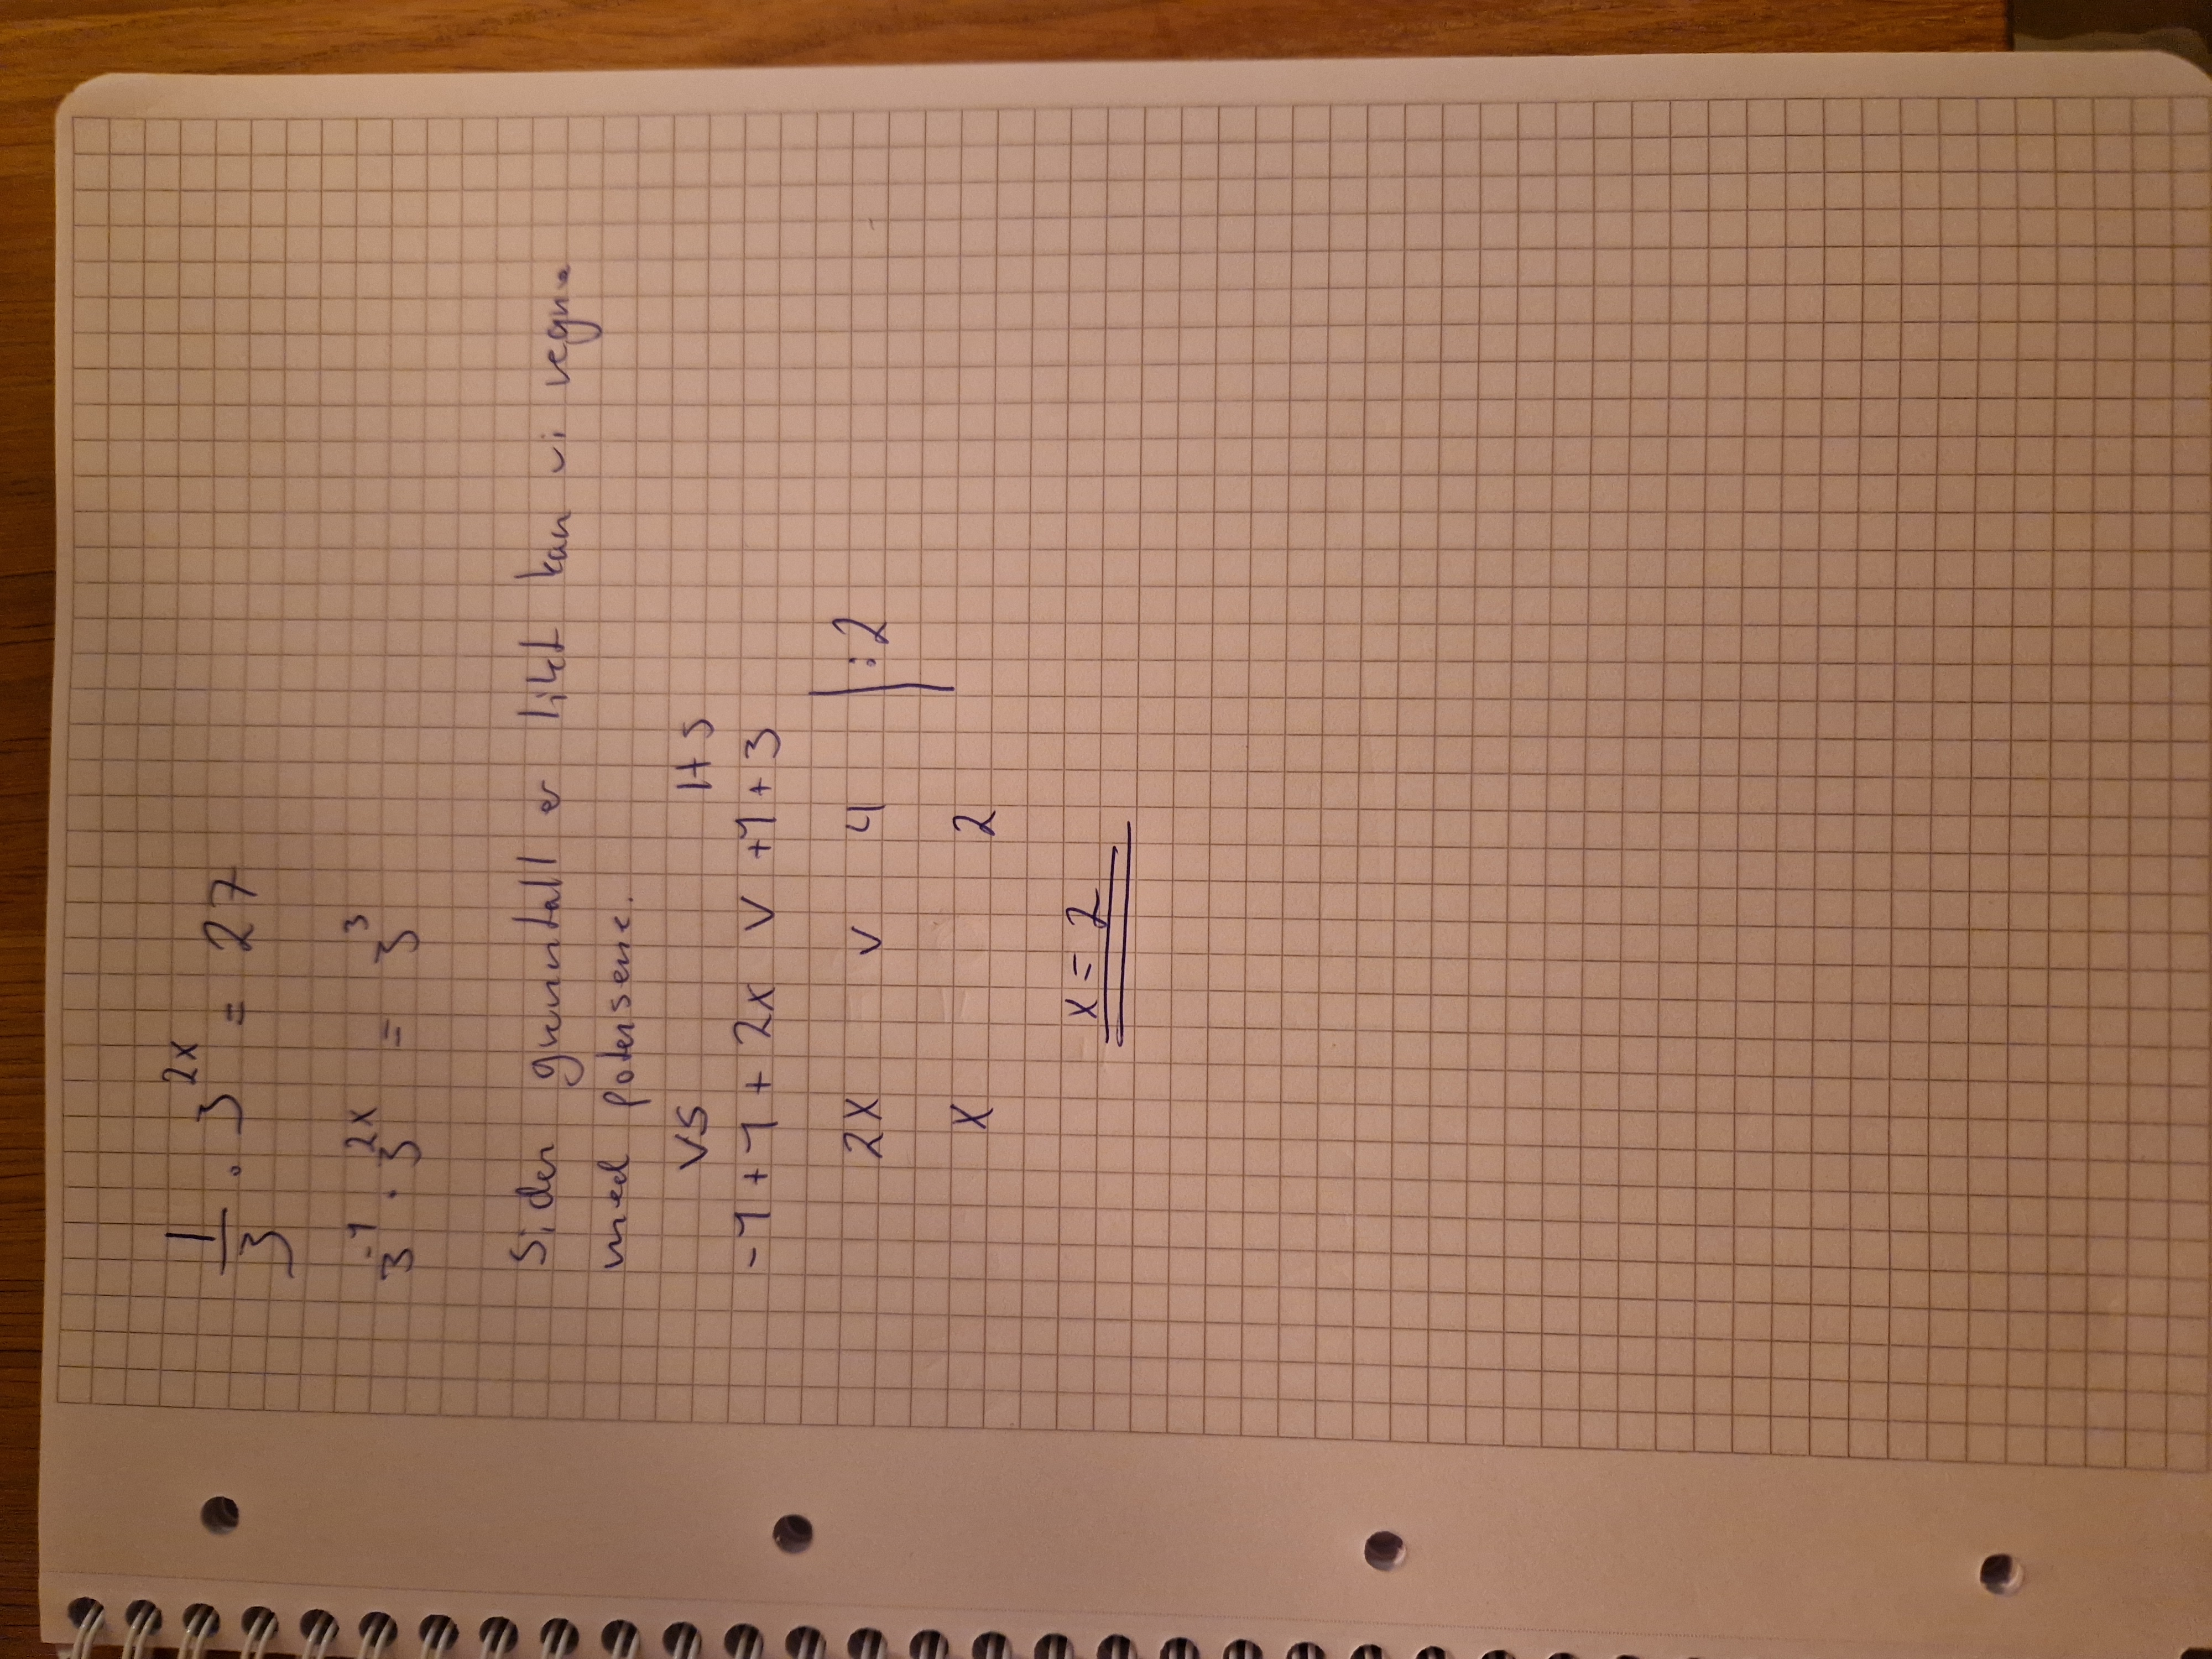 1/3 · 3^2x = 27
3^-1 · 3^2x = 3^3
Siden grunntall er likt kan vi regne
med potensene.
VS HS
-1+1+2x v +1+3
2x v 4 |:2
x 2
x = 2